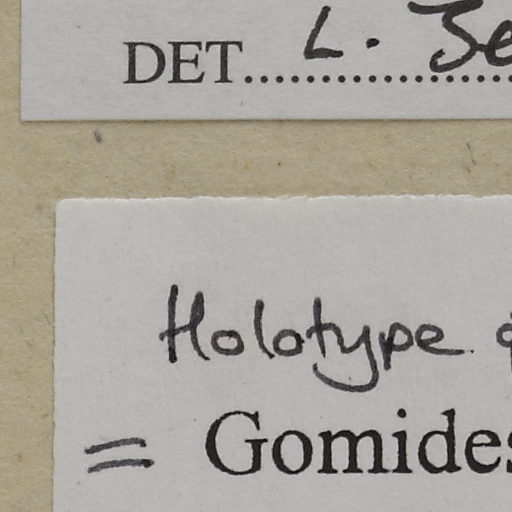 DET.............. L.
Holotype
= Gomides